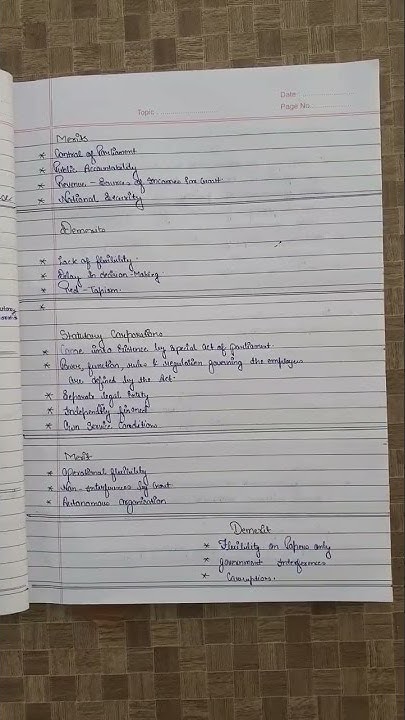 Date:
Topic :
Page No.
Merits
* Control of Parliament
* Public Accountability
* Revenue - Sources of Incomes for Govt.
* National Security
Demerits
* Lack of flexibility.
* Delay In decision-Making
* Red - Tapism.
*
Statutory Corporations
* Come into Existence by special act of parliament
* Power, function, rules & regulation governing the employees
are defined by the Act.
* Separate legal Entity
* Independently financed
* Own Service Conditions
Merit
* Operational flexibility
* Non - Interferences by Govt
* Autonomous Organisation
Demerit
* Flexibility on Papers only
* government Interferences
* Corruption.